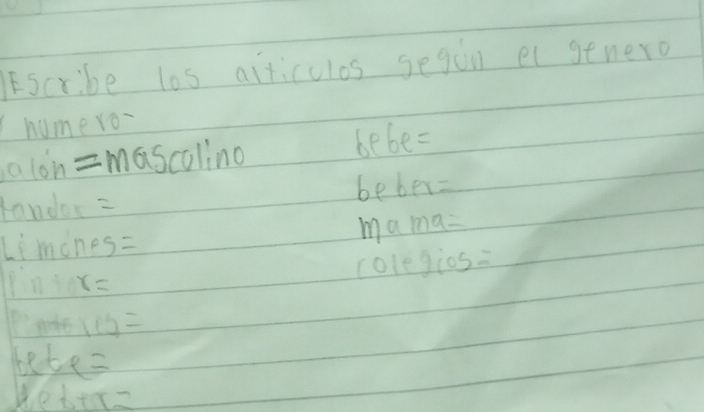 Escribe los articulos según el genero
numero-
alón = mascolino
Limones=
Pintor=
bebe=
beber=
bebe=
beber=
mama=
colegios=